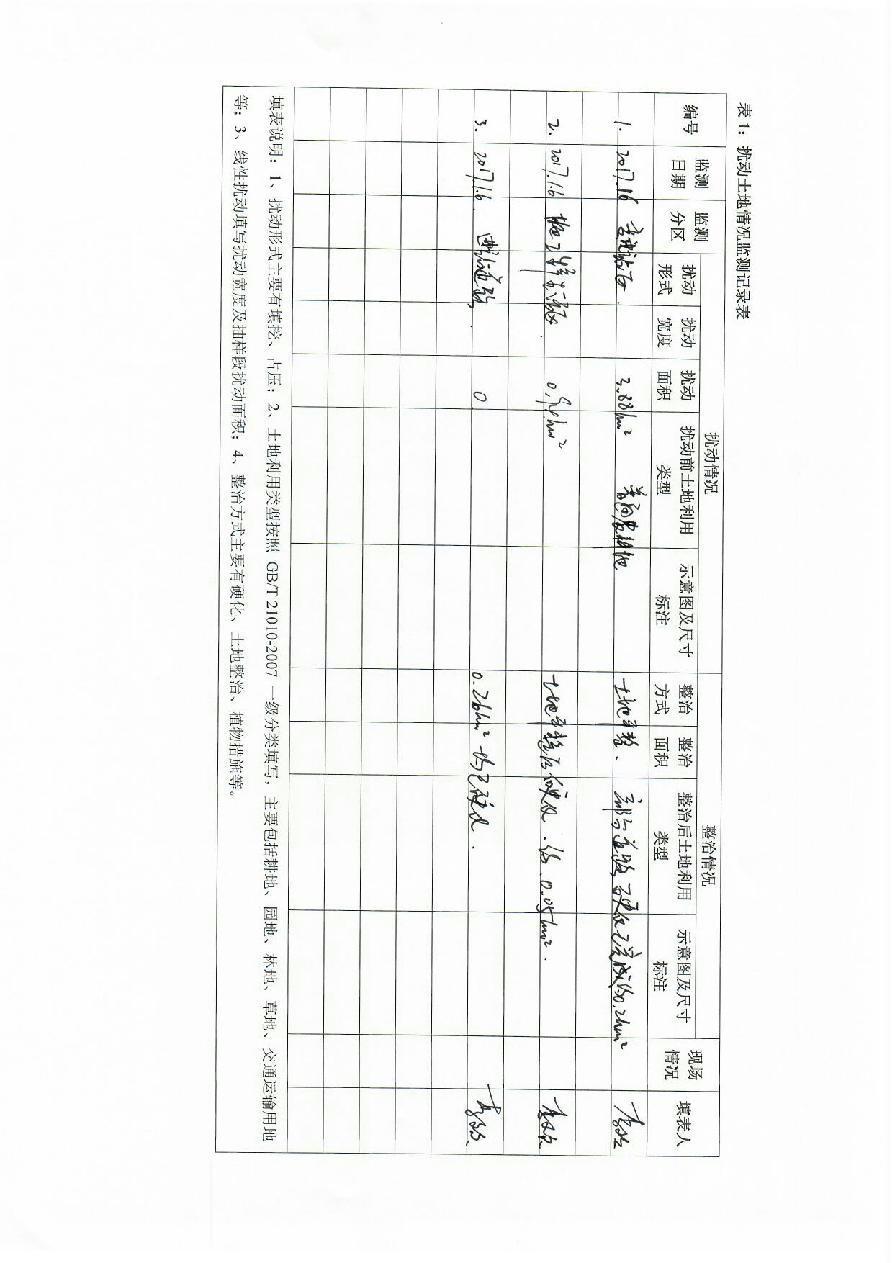 表1：扰动土地情况监测记录表
编号 监测日期 监测分区 扰动情况 整治情况 现场情况 填表人
扰动形式 扰动宽度 扰动面积 扰动前土地利用类型 示意图及尺寸标注 整治方式 整治面积 整治后土地利用类型 示意图及尺寸标注
1. 2017.1.6 3.88hm² 土地平整. 部分道路 硬化已完成约0.2hm²
2. 2017.1.6 土地平整后硬化. 约0.05hm².
3. 2017.1.6. 进站道路 0 0.26hm² 均已硬化.
填表说明：1、扰动形式主要有填挖、占压；2、土地利用类型按照 GB/T 21010-2007 一级分类填写，主要包括耕地、园地、林地、草地、交通运输用地
等；3、线性扰动填写扰动宽度及抽样段扰动面积；4、整治方式主要有硬化、土地整治、植物措施等。